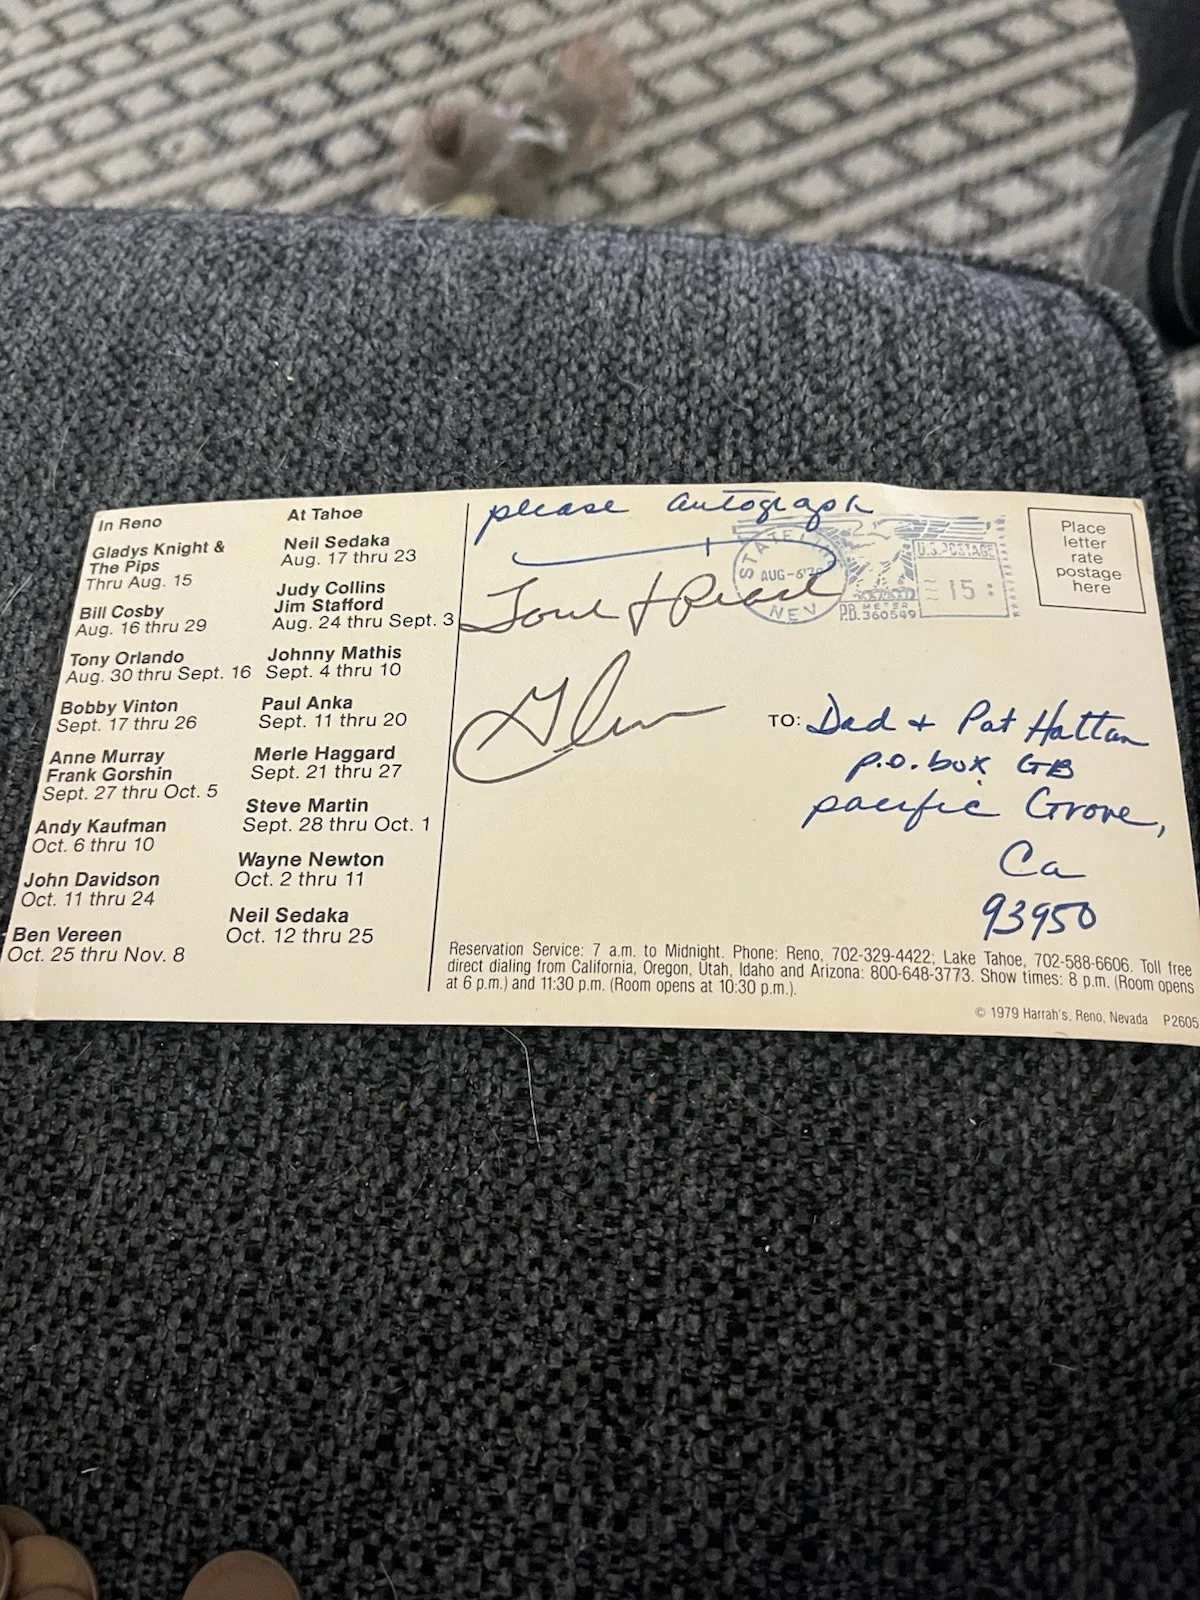 In Reno
Gladys Knight &
The Pips
Thru Aug. 15
Bill Cosby
Aug. 16 thru 29
Tony Orlando
Aug. 30 thru Sept. 16
Bobby Vinton
Sept. 17 thru 26
Anne Murray
Frank Gorshin
Sept. 27 thru Oct. 5
Andy Kaufman
Oct. 6 thru 10
John Davidson
Oct. 11 thru 24
Ben Vereen
Oct. 25 thru Nov. 8
At Tahoe
Neil Sedaka
Aug. 17 thru 23
Judy Collins
Jim Stafford
Aug. 24 thru Sept. 3
Johnny Mathis
Sept. 4 thru 10
Paul Anka
Sept. 11 thru 20
Merle Haggard
Sept. 21 thru 27
Steve Martin
Sept. 28 thru Oct. 1
Wayne Newton
Oct. 2 thru 11
Neil Sedaka
Oct. 12 thru 25
please autograph
AUG-6'79
NEV
U.S. POSTAGE
15
P.B. METER
360549
Place
letter
rate
postage
here
Glen
TO: Dad + Pat Hattan
P.O. box GB
pacific Grove,
Ca
93950
Reservation Service: 7 a.m. to Midnight. Phone: Reno, 702-329-4422; Lake Tahoe, 702-588-6606. Toll free
direct dialing from California, Oregon, Utah, Idaho and Arizona: 800-648-3773. Show times: 8 p.m. (Room opens
at 6 p.m.) and 11:30 p.m. (Room opens at 10:30 p.m.).
© 1979 Harrah's, Reno, Nevada P2605